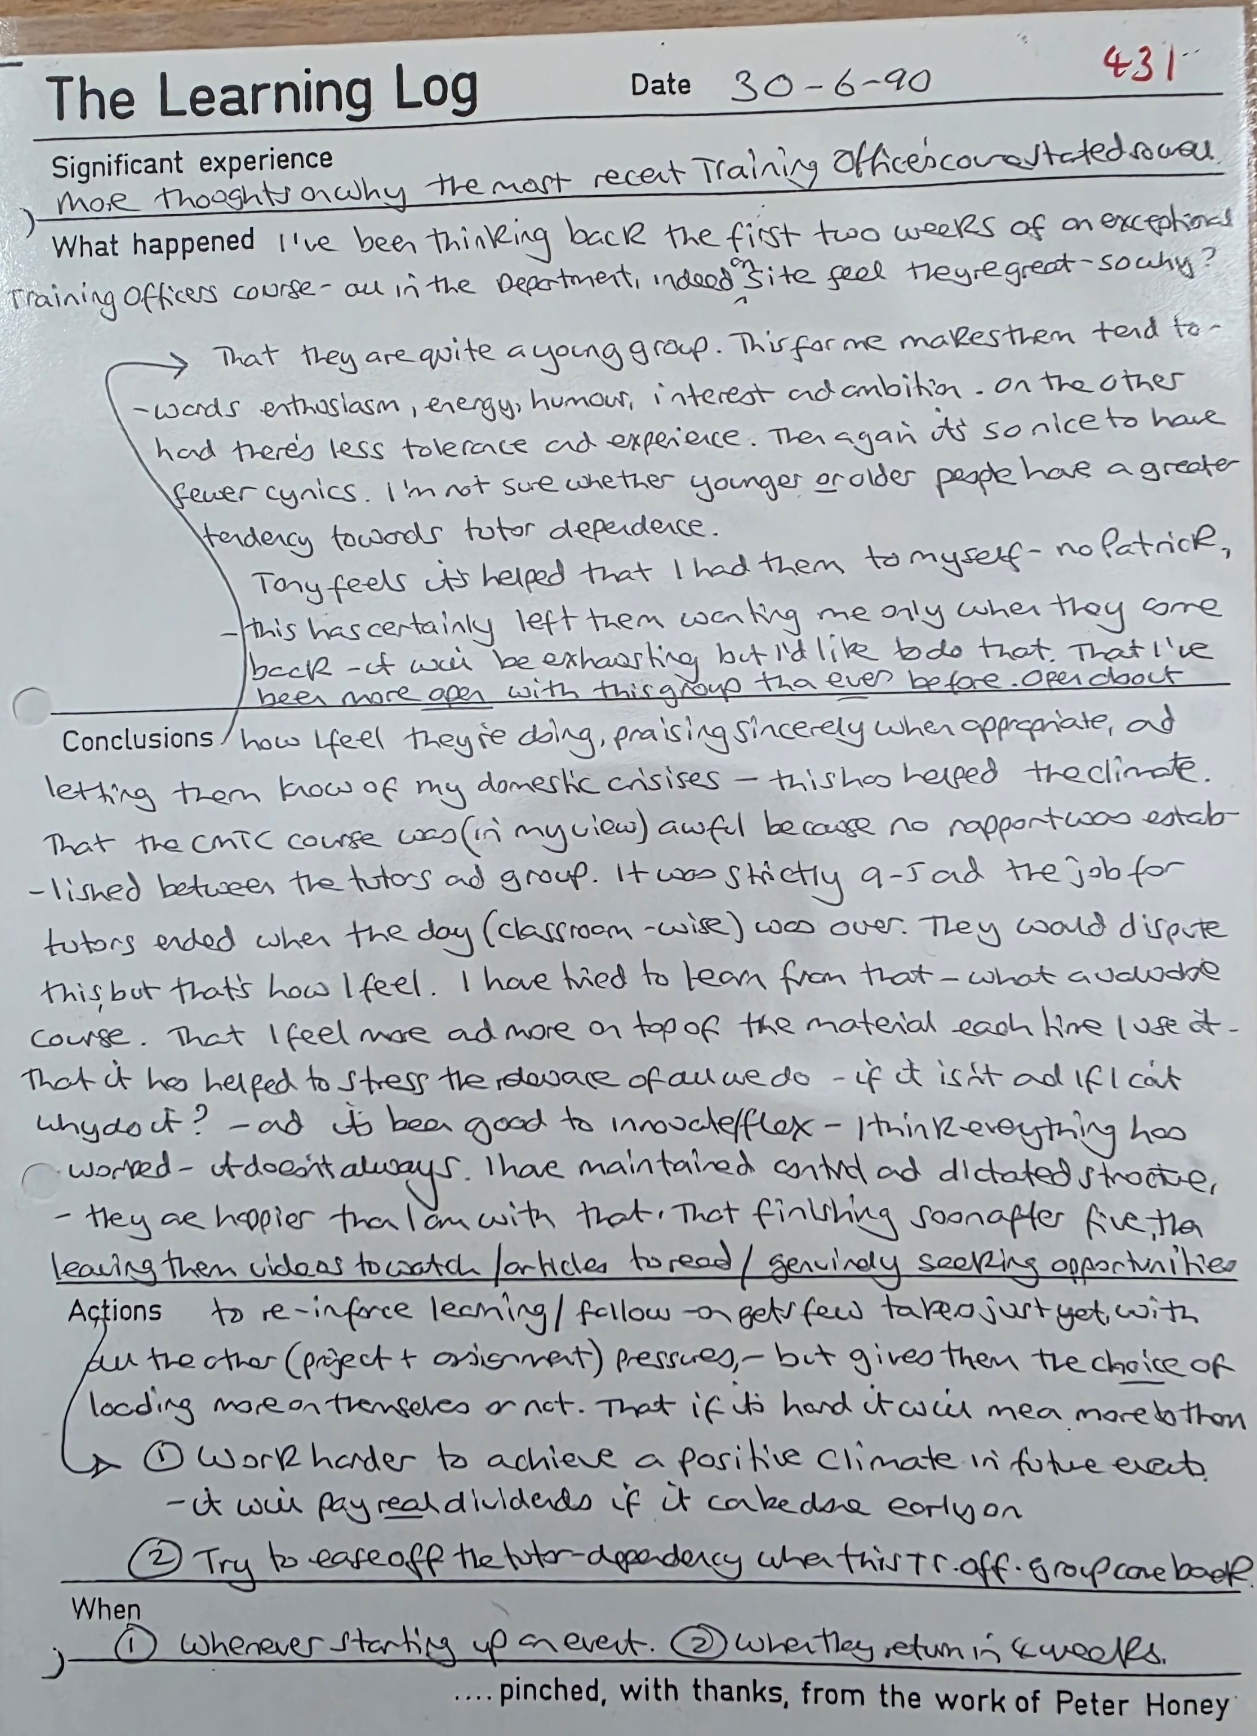 The Learning Log Date 30-6-90 431
Significant experience
More thoughts on why the most recent Training Officer's course started so well.
What happened I've been thinking back the first two weeks of an exceptional
Training Officers course - all in the Department, indeed on site feel they're great - so why?
That they are quite a young group. This for me makes them tend to-
-wards enthusiasm, energy, humour, interest and ambition. On the other
hand there's less tolerance and experience. Then again it's so nice to have
fewer cynics. I'm not sure whether younger or older people have a greater
tendency towards tutor dependence.
Tony feels it's helped that I had them to myself - no Patrick,
- this has certainly left them wanting me only when they come
back - it will be exhausting but I'd like to do that. That I've
been more open with this group than ever before. Open about
Conclusions how I feel they're doing, praising sincerely when appropriate, and
letting them know of my domestic crisises - this has helped the climate.
That the CMTC course was (in my view) awful because no rapport was estab-
-lished between the tutors and group. It was strictly 9-5 and the job for
tutors ended when the day (classroom-wise) was over. They would dispute
this, but that's how I feel. I have tried to learn from that - what a valuable
course. That I feel more and more on top of the material each time I use it -
That it has helped to stress the relevance of all we do - if it isn't and if I can't
why do it? - and it's been good to innovate/flex - I think everything has
worked - it doesn't always. I have maintained control and dictated structure,
- they are happier than I am with that. That finishing soon after five, then
leaving them videos to watch / articles to read / genuinely seeking opportunities
Actions to re-inforce learning / follow-on gets few takers just yet, with
all the other (project + assignment) pressures, - but gives them the choice of
loading more on themselves or not. That if it's hard it will mean more to them
① Work harder to achieve a positive climate in future events
- it will pay real dividends if it can be done early on
② Try to ease off the tutor-dependency when this Tr. Off. group come back.
When
① Whenever starting up an event. ② When they return in 4 weeks.
.... pinched, with thanks, from the work of Peter Honey